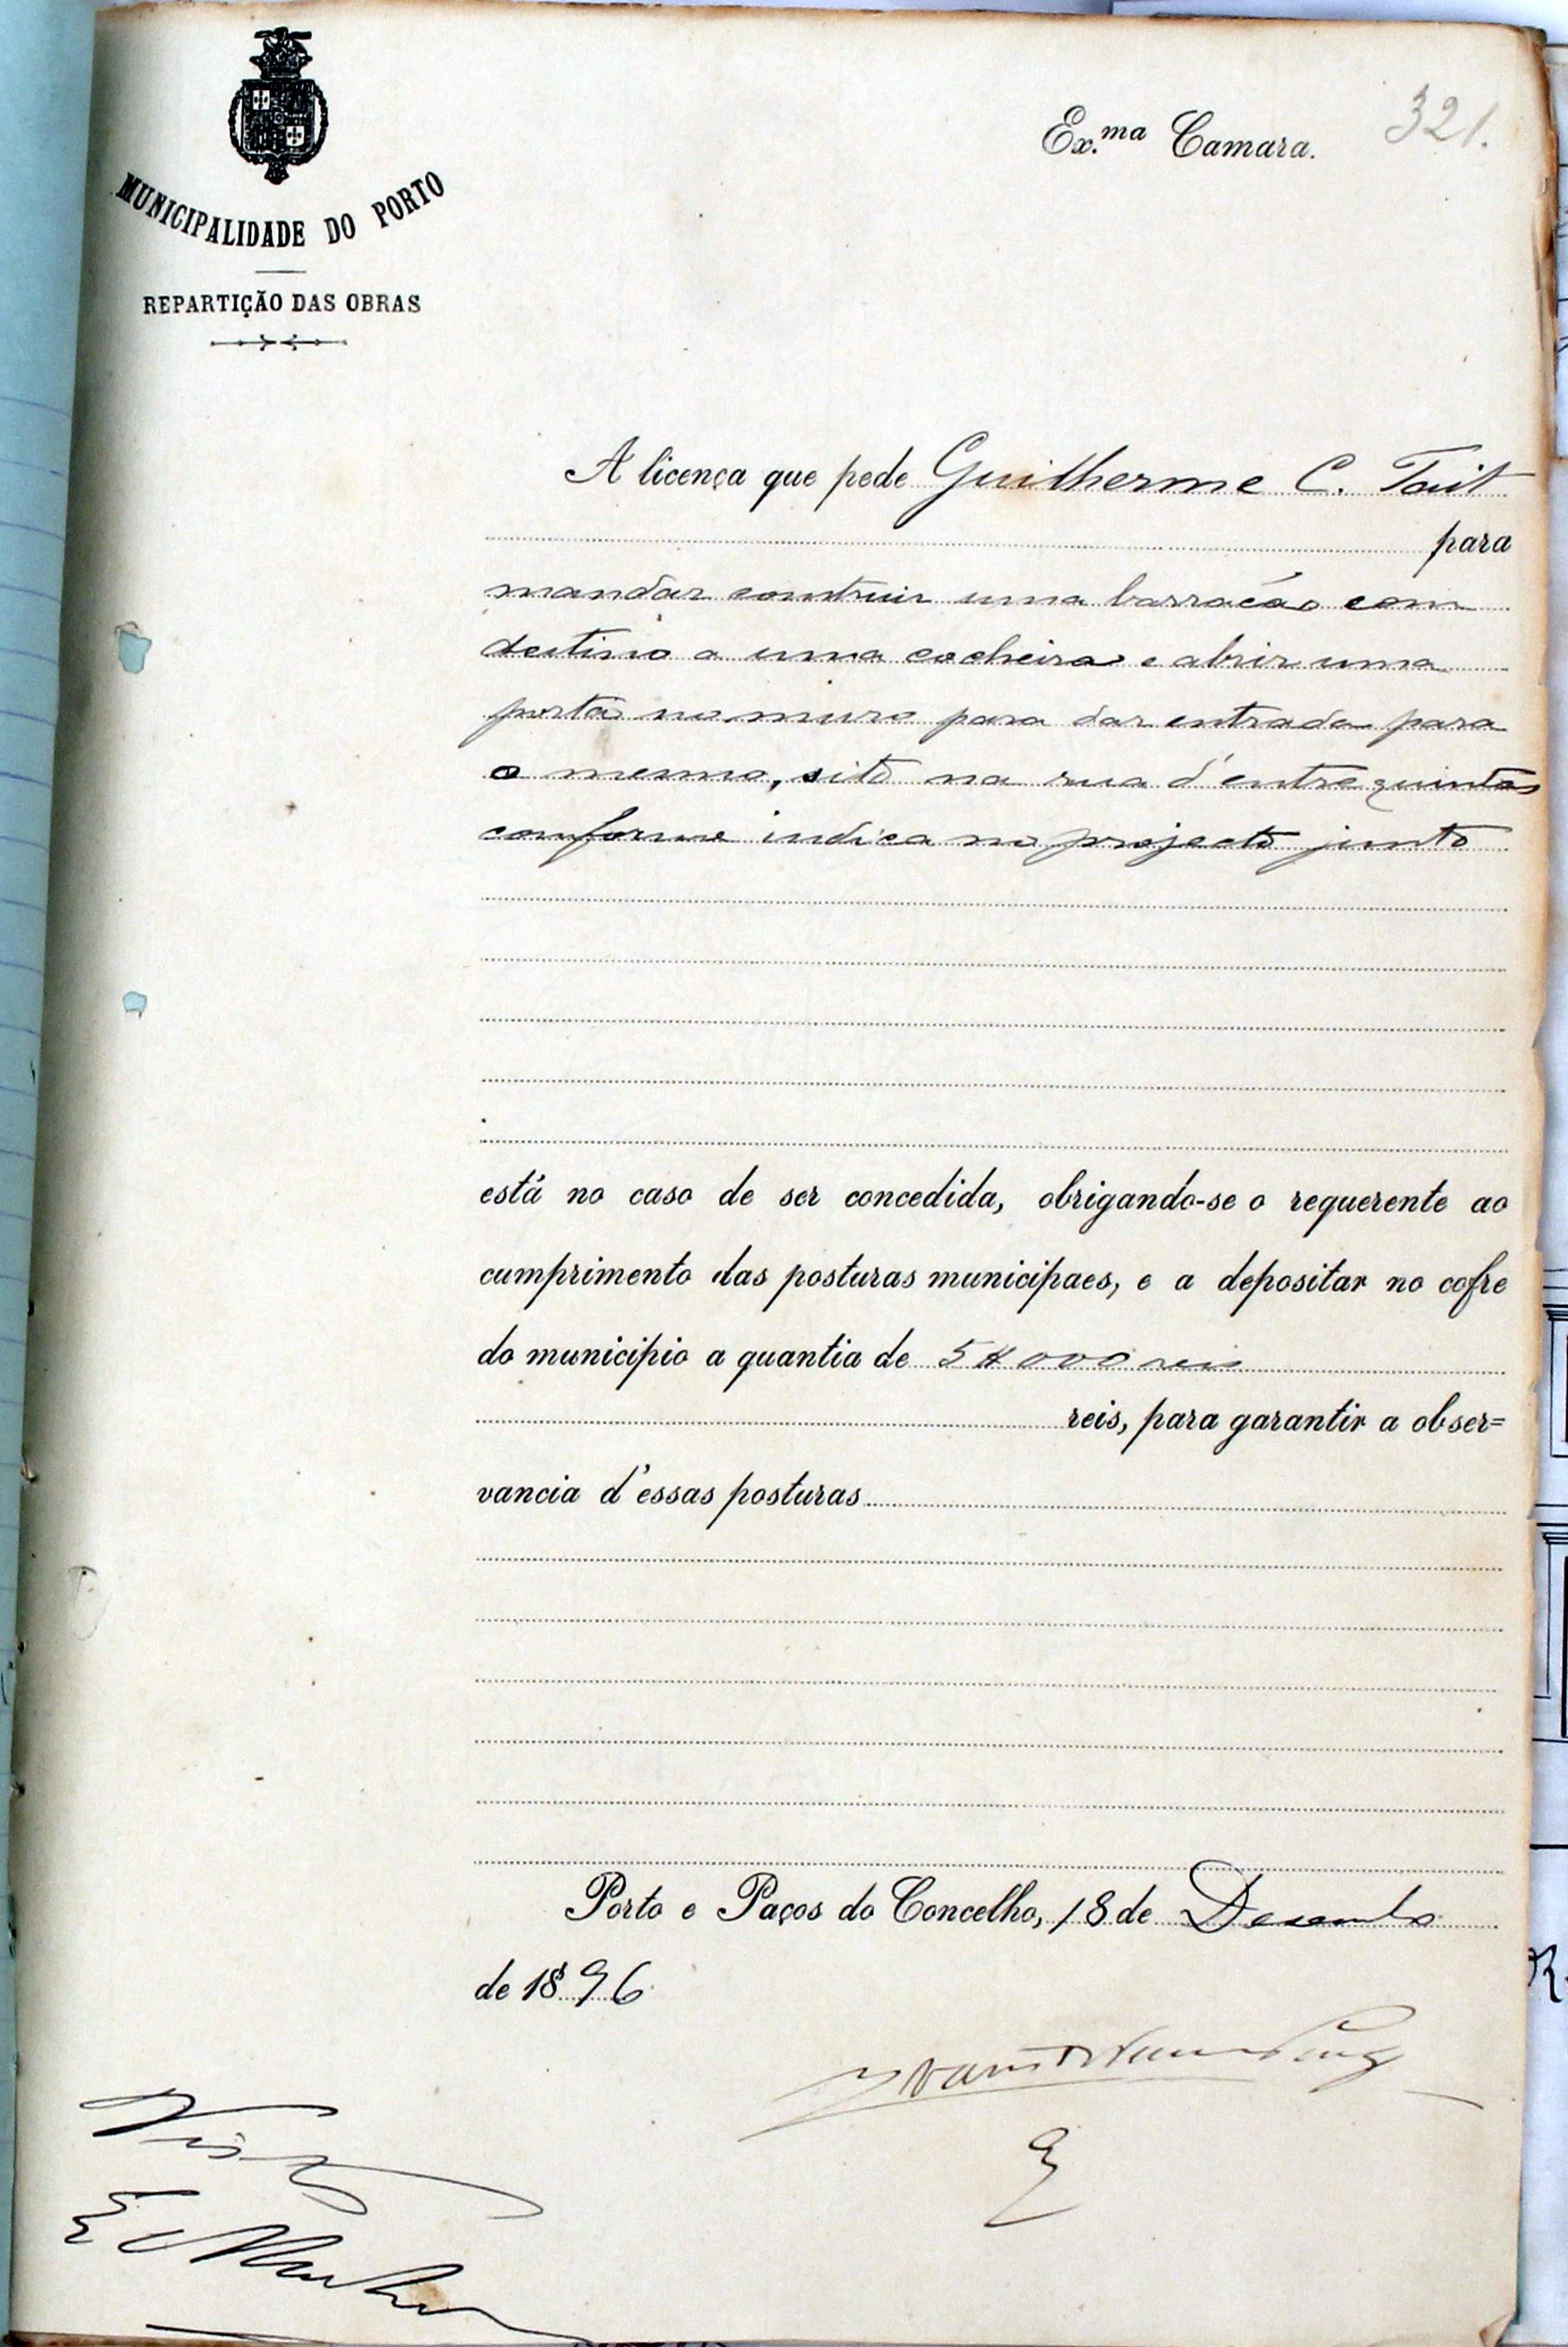 321.
Ex.ma Camara.
MUNICIPALIDADE DO PORTO
REPARTIÇÃO DAS OBRAS
A licença que pede Guilherme C. Tait
para
mandar construir uma barracão com
destino a uma cocheira e abrir uma
porta no muro para dar entrada para
o mesmo, sito na rua d'entre quintas
conforme indica no projecto junto
está no caso de ser concedida, obrigando-se o requerente ao
cumprimento das posturas municipaes, e a depositar no cofre
do municipio a quantia de 5$000 reis
reis, para garantir a obser=
vancia d'essas posturas
Porto e Paços do Concelho, 18 de Dezembro
de 1896
Visto